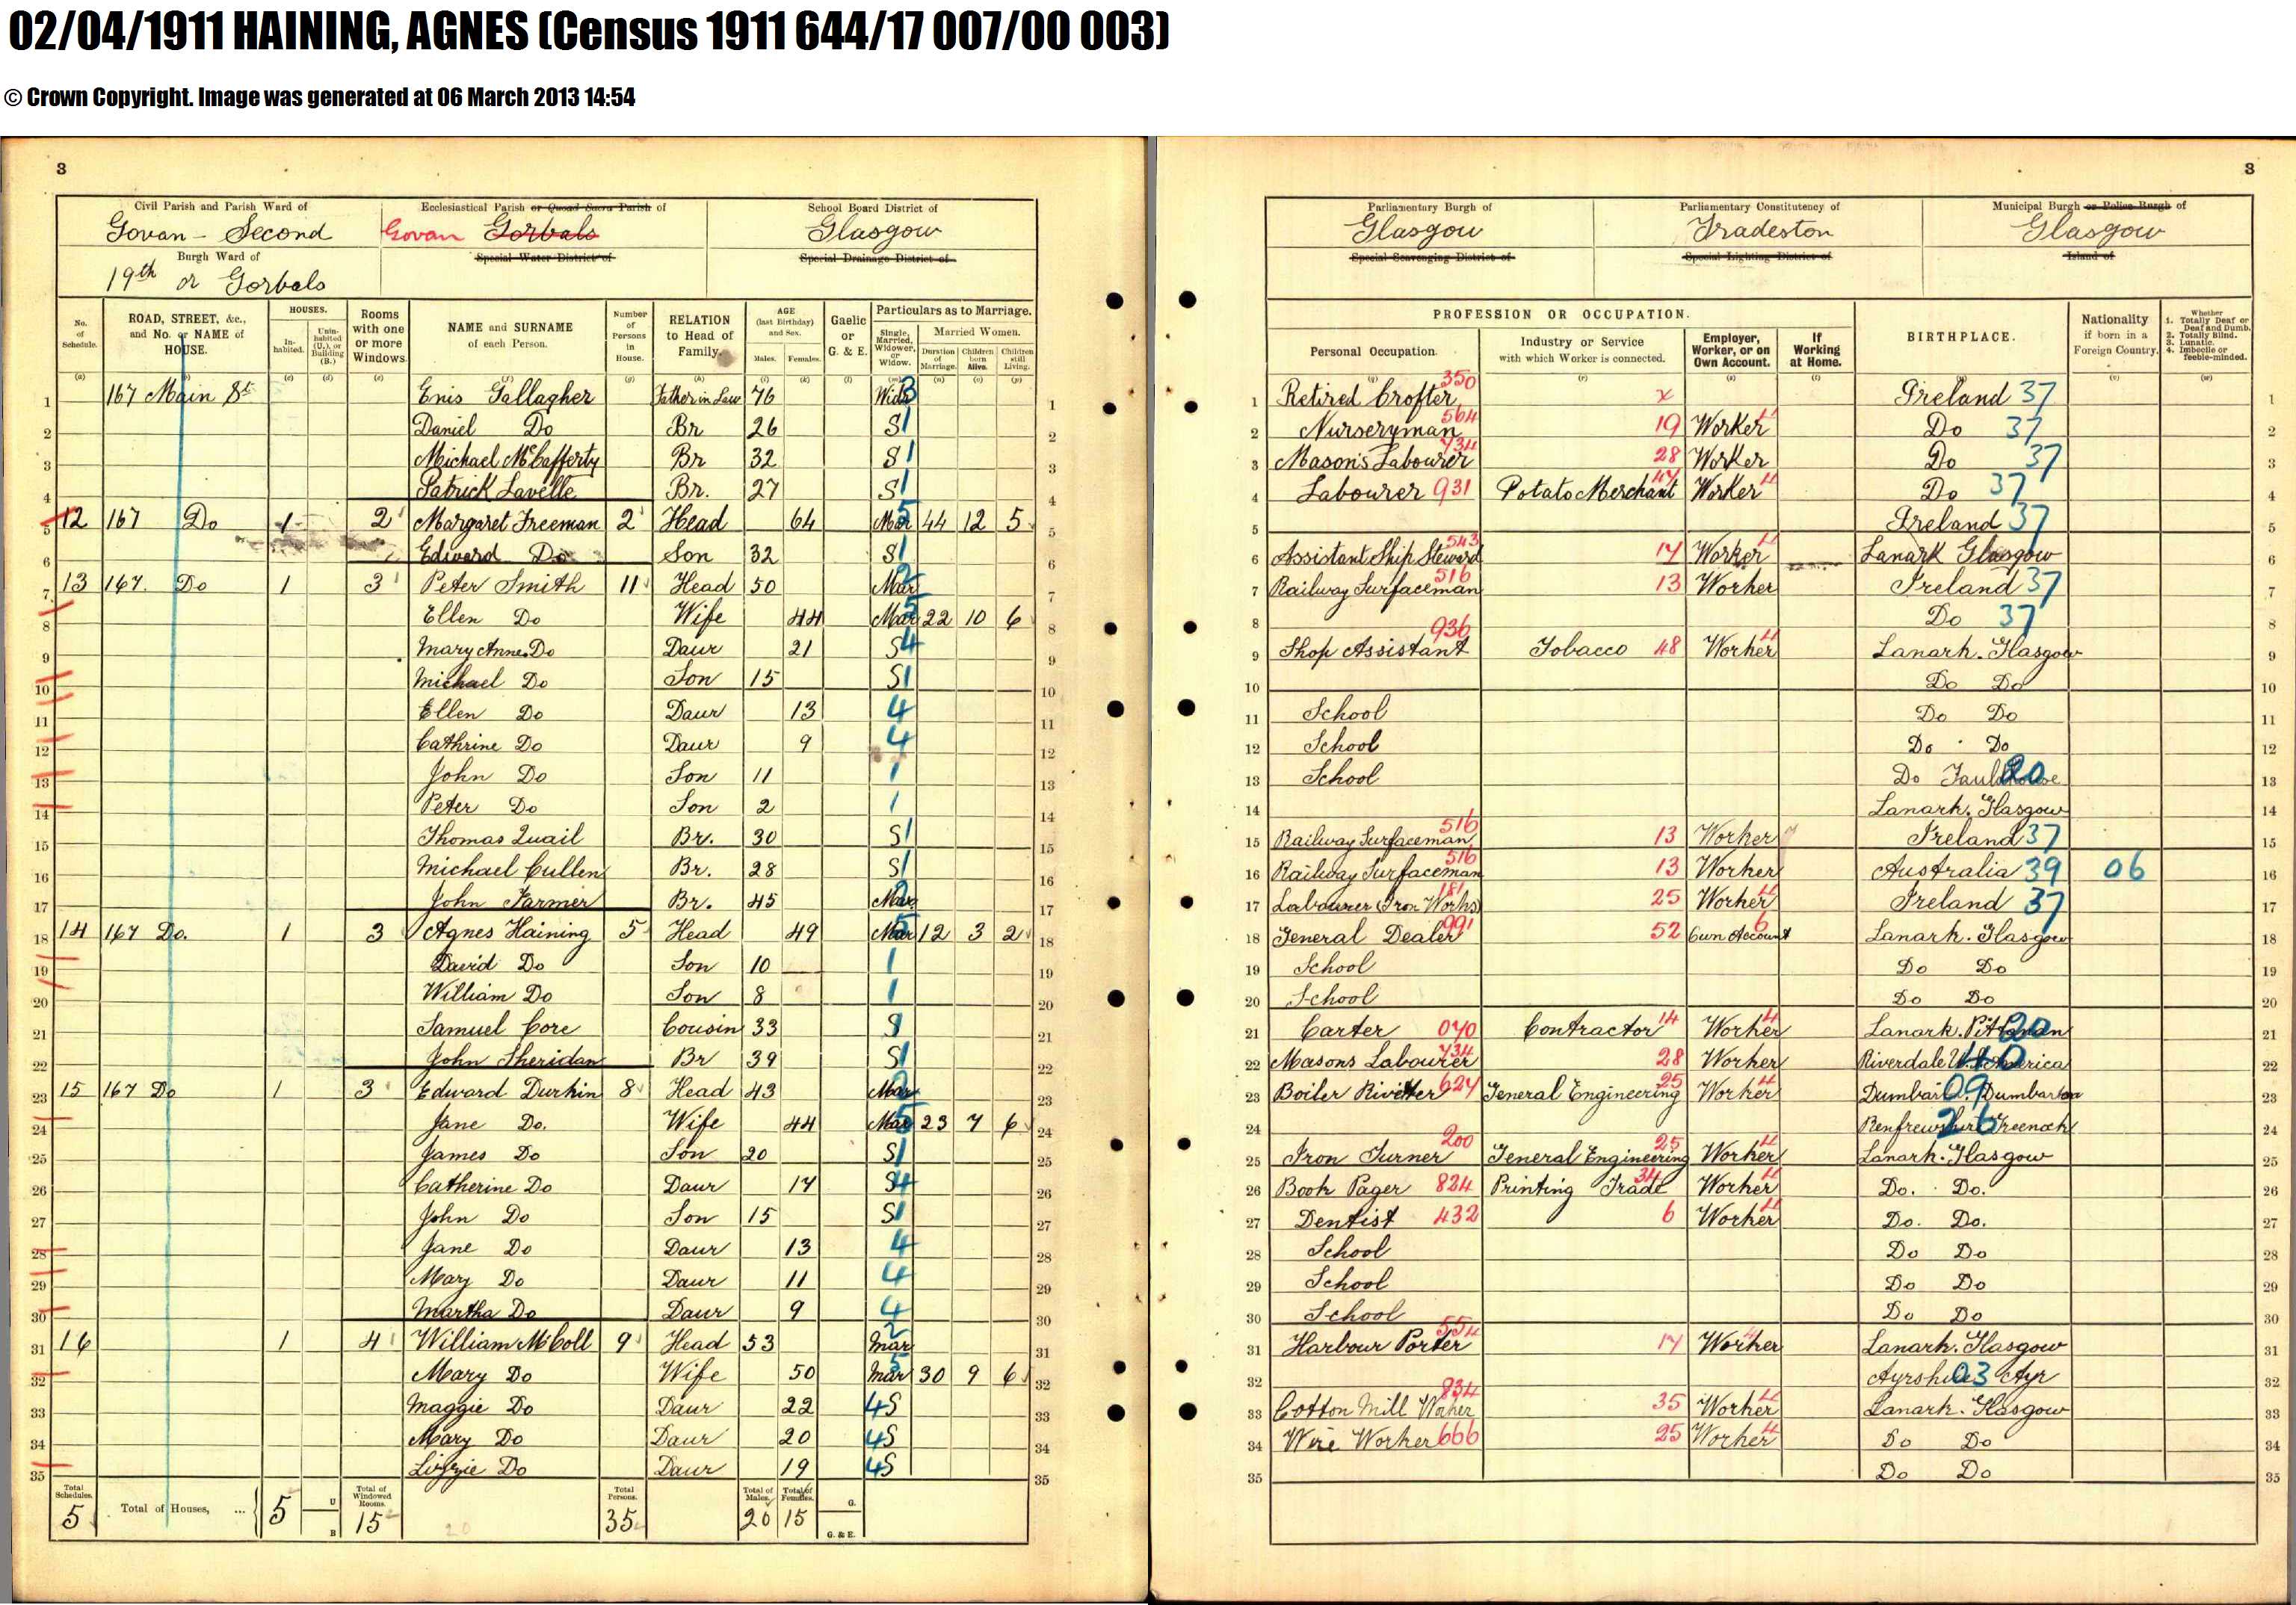 02/04/1911 HAINING, AGNES (Census 1911 644/17 007/00 003)
© Crown Copyright. Image was generated at 06 March 2013 14:54
3
Civil Parish and Parish Ward of
Govan - Second
Ecclesiastical Parish or Quoad Sacra Parish of
Govan Gorbals
School Board District of
Glasgow
Burgh Ward of
19th or Gorbals
Special Water District of
Special Drainage District of
No. of Schedule.
ROAD, STREET, &c., and No. or NAME of HOUSE.
HOUSES.
In-habited.
Unin-habited (U.), or Building (B.)
Rooms with one or more Windows.
NAME and SURNAME of each Person.
Number of Persons in House.
RELATION to Head of Family.
AGE (last Birthday) and Sex.
Males. Females.
Gaelic or G. & E.
Particulars as to Marriage.
Single, Married, Widower, or Widow.
Married Women.
Duration of Marriage. Children born Alive. Children still Living.
1 167 Main St Enis Gallagher Father in Law 76 Widr 3 1
2 Daniel Do Br 26 S 1 2
3 Michael McCafferty Br 32 S 1 3
4 Patrick Lavelle Br. 27 S 1 4
5 12 167 Do 1 2 Margaret Freeman 2 Head 64 Mar 5 44 12 5 5
6 Edward Do Son 32 S 1 6
7 13 167 Do 1 3 Peter Smith 11 Head 50 Mar 2 7
8 Ellen Do Wife 44 Mar 5 22 10 6 8
9 Mary Anne Do Daur 21 S 4 9
10 Michael Do Son 15 S 1 10
11 Ellen Do Daur 13 4 11
12 Cathrine Do Daur 9 4 12
13 John Do Son 11 1 13
14 Peter Do Son 2 1 14
15 Thomas Quail Br. 30 S 1 15
16 Michael Cullen Br. 28 S 1 16
17 John Farmer Br. 45 Mar 2 17
18 14 167 Do. 1 3 Agnes Haining 5 Head 49 Mar 5 12 3 2 18
19 David Do Son 10 1 19
20 William Do Son 8 1 20
21 Samuel Core Cousin 33 S 1 21
22 John Sheridan Br 39 S 1 22
23 15 167 Do 1 3 Edward Durkin 8 Head 43 Mar 2 23
24 Jane Do. Wife 44 Mar 5 23 7 6 24
25 James Do Son 20 S 1 25
26 Catherine Do Daur 17 S 4 26
27 John Do Son 15 S 1 27
28 Jane Do Daur 13 4 28
29 Mary Do Daur 11 4 29
30 Martha Do Daur 9 4 30
31 16 1 4 William McColl 9 Head 53 Mar 2 31
32 Mary Do Wife 50 Mar 5 30 9 6 32
33 Maggie Do Daur 22 4 S 33
34 Mary Do Daur 20 4 S 34
35 Lizzie Do Daur 19 4 S 35
Total Schedules. 5
Total of Houses, ... 5
U
B
Total of Windowed Rooms. 15
Total Persons. 35
Total of Males. 20
Total of Females. 15
G.
G. & E.
3
Parliamentary Burgh of
Glasgow
Parliamentary Constituency of
Tradeston
Municipal Burgh or Police Burgh of
Glasgow
Special Scavenging District of
Special Lighting District of
Island of
PROFESSION OR OCCUPATION.
Personal Occupation.
Industry or Service with which Worker is connected.
Employer, Worker, or on Own Account.
If Working at Home.
BIRTHPLACE.
Nationality if born in a Foreign Country.
Whether
1. Totally Deaf or Deaf and Dumb.
2. Totally Blind.
3. Lunatic.
4. Imbecile or feeble-minded.
1 Retired Crofter 350 x Ireland 37 1
2 Nurseryman 564 19 Worker Do 37 2
3 Masons Labourer 734 28 Worker Do 37 3
4 Labourer 931 Potato Merchant 47 Worker Do 37 4
5 Ireland 37 5
6 Assistant Ship Steward 543 17 Worker Lanark Glasgow 6
7 Railway Surfaceman 516 13 Worker Ireland 37 7
8 Do 37 8
9 Shop Assistant 936 Tobacco 48 Worker Lanark. Glasgow 9
10 Do Do 10
11 School Do Do 11
12 School Do Do 12
13 School Do Fauldhouse 20 13
14 Lanark. Glasgow
15 Railway Surfaceman 516 13 Worker Ireland 37 15
16 Railway Surfaceman 516 13 Worker Australia 39 06 16
17 Labourer (Iron Works) 181 25 Worker Ireland 37 17
18 General Dealer 991 52 Own Account 6 Lanark. Glasgow 18
19 School Do Do 19
20 School Do Do 20
21 Carter 070 Contractor 14 Worker Lanark. 20 21
22 Masons Labourer 734 28 Worker Riverdale America 40 22
23 Boiler Rivetter 627 General Engineering 25 Worker Dumbarton 09 23
24 Renfrewshire Greenock 26 24
25 Iron Turner 200 General Engineering 25 Worker Lanark. Glasgow 25
26 Book Pager 824 Printing Trade 34 Worker Do. Do. 26
27 Dentist 432 6 Worker Do. Do. 27
28 School Do Do 28
29 School Do Do 29
30 School Do Do 30
31 Harbour Porter 554 17 Worker Lanark. Glasgow 31
32 Ayrshire Ayr 03 32
33 Cotton Mill Worker 834 35 Worker Lanark. Glasgow 33
34 Wire Worker 666 25 Worker Do Do 34
35 Do Do 35